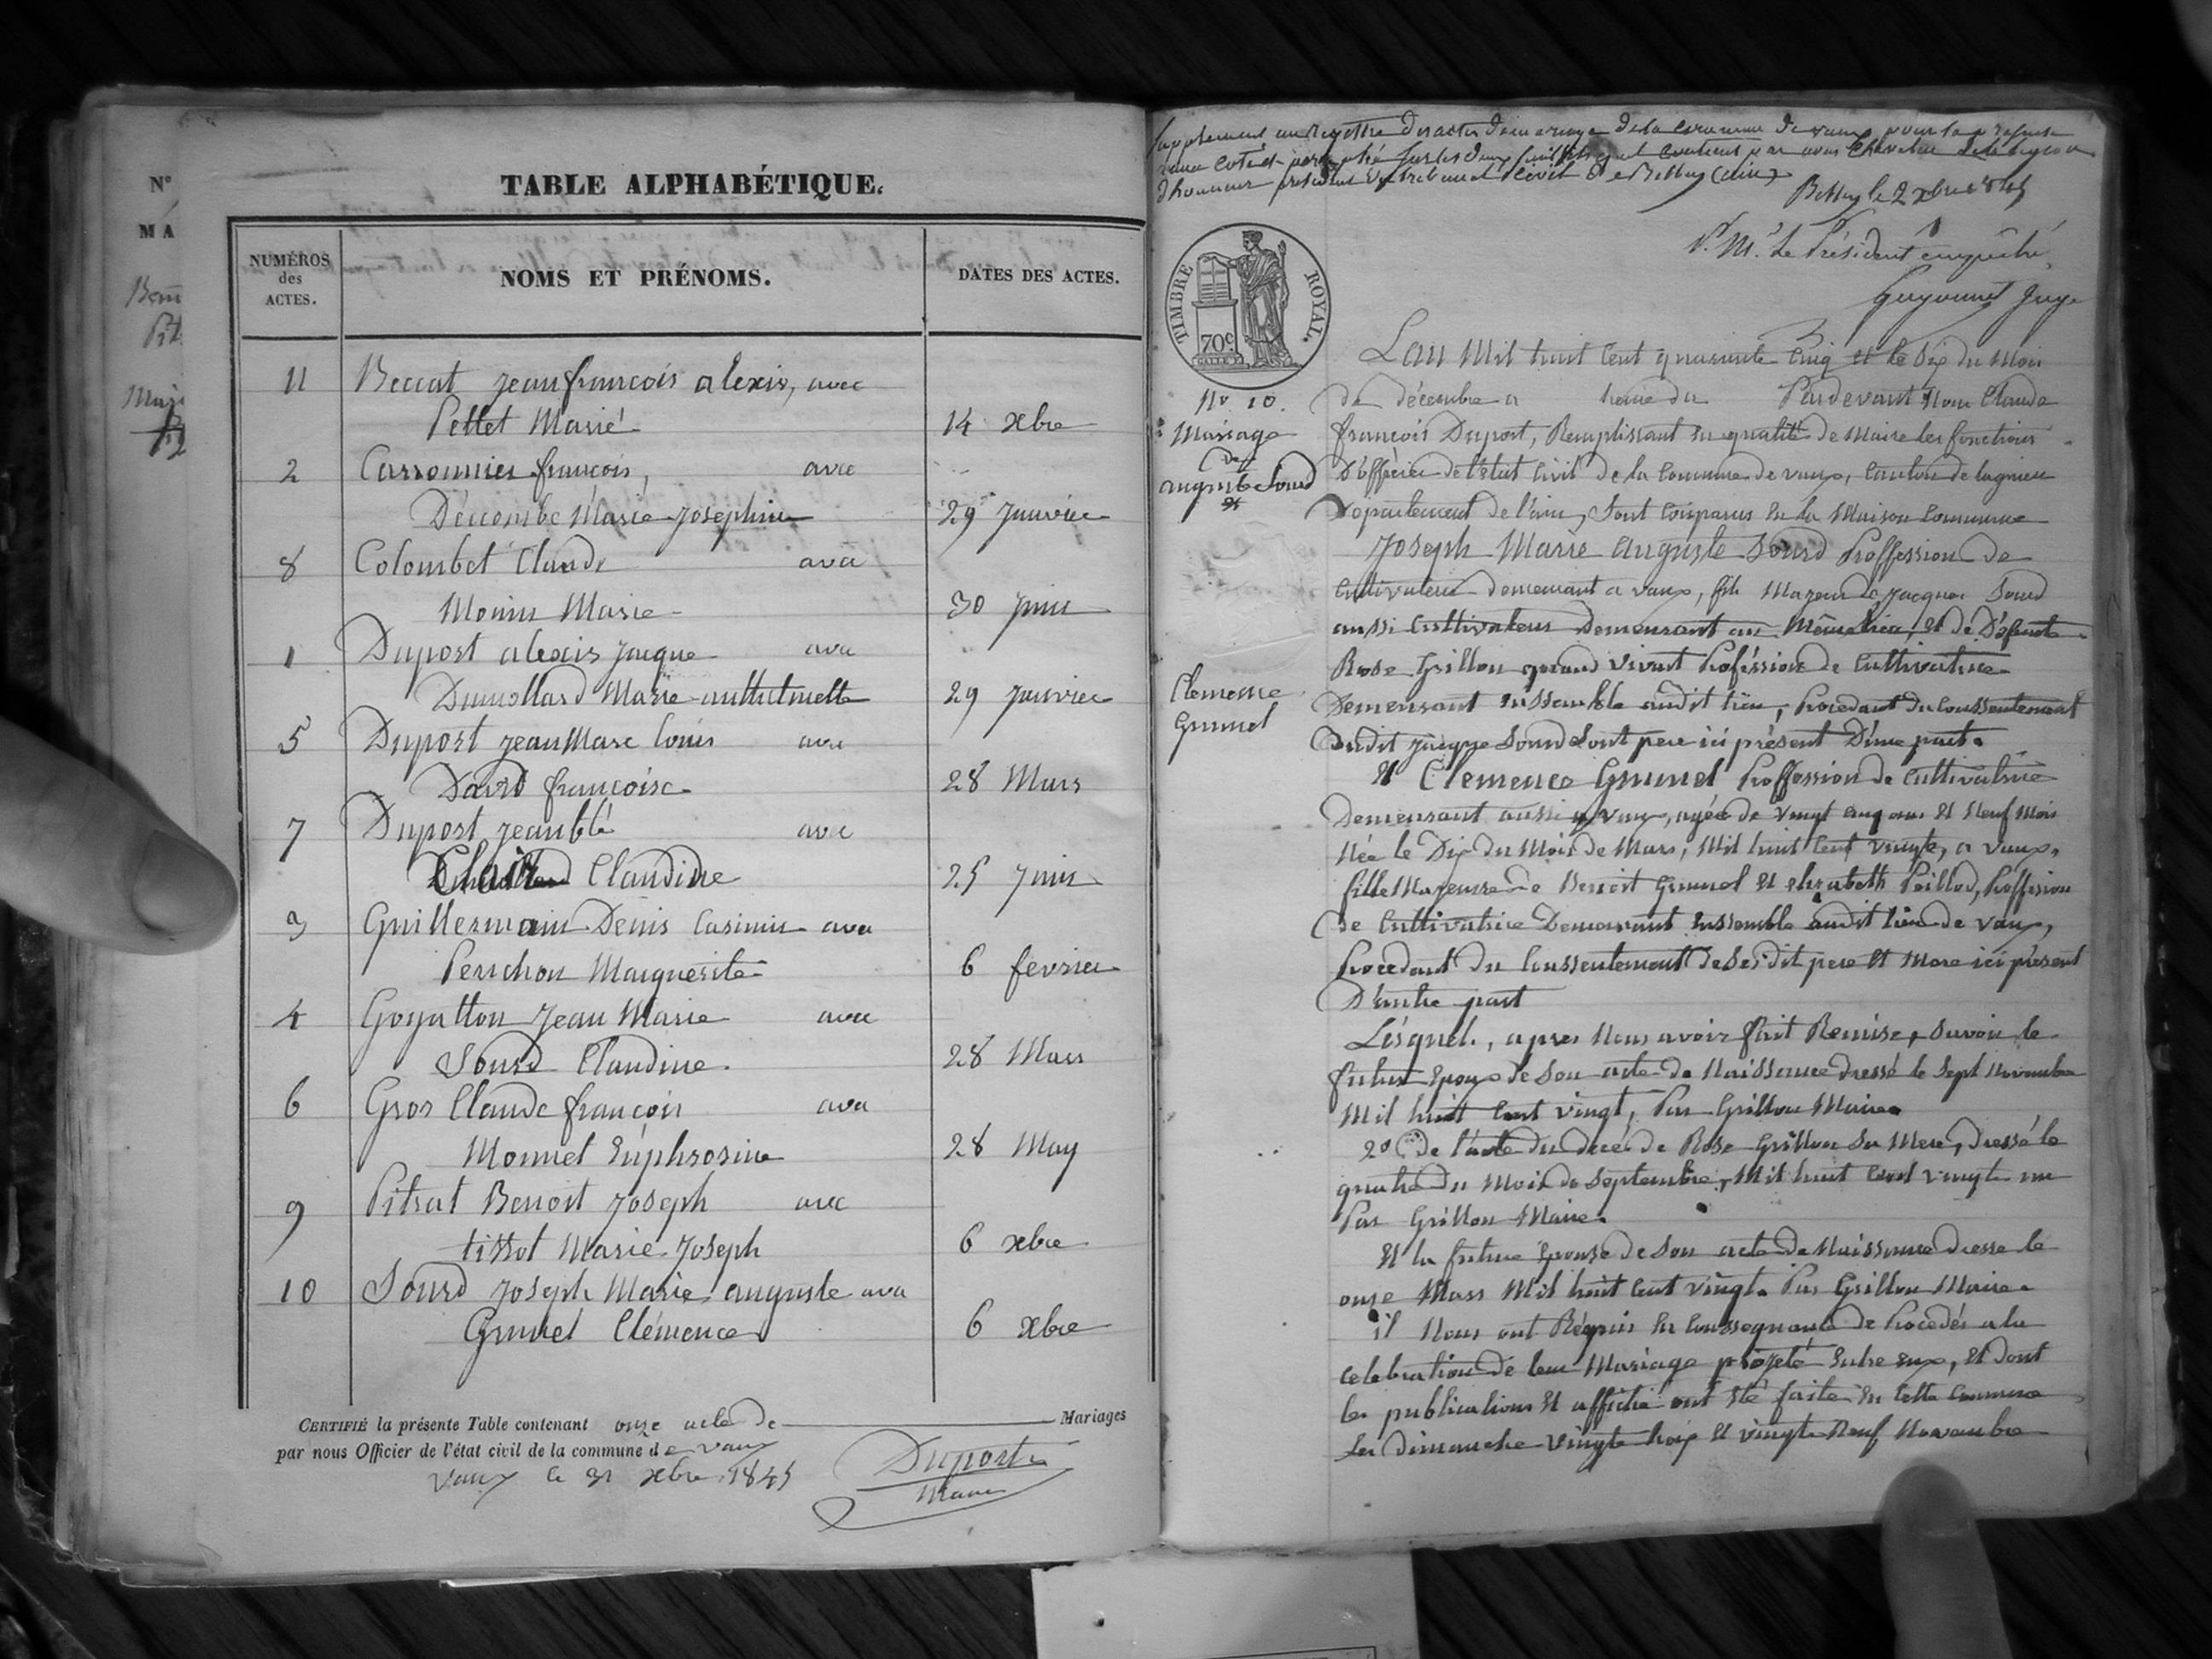 N°
MA
TABLE ALPHABÉTIQUE.
NUMÉROS des ACTES.
NOMS ET PRÉNOMS.
DATES DES ACTES.
11 Beccat jean françois alexis, avec
Pettet Marié 14 xbre
2 Carronnier françois, avec
Déscombe Marie Josephine 29 janvier
8 Colombet Claude avec
Monin Marie 30 juin
1 Duport alexis jacque avec
Dumollard Marie anthelmette 29 janvier
5 Duport jean Marc louis avec
David françoise 28 Mars
7 Duport jean bte avec
Clair Claudine 25 juin
3 Guillermain Denis Casimir avec
Perichon Marguerite 6 fevrier
4 Goyatton Jean Marie avec
Sourd Claudine 28 Mars
6 Gros Claude françois avec
Monnet Euphrosine 28 May
9 Pitrat Benoit Joseph avec
tissot Marie Joseph 6 xbre
10 Sourd Joseph Marie auguste avec
Grunel Clémence 6 xbre
CERTIFIÉ la présente Table contenant onze acte de Mariages
par nous Officier de l'état civil de la commune de vaux
vaux le 31 xbre 1845
Duport
Maire
Supplement au Registre des actes de mariage de la commune de vaux pour la présente
année coté et paraphé sur les deux feuillets qu'il contient par nous Chevalier de la légion
d'honneur président du tribunal civil de Belley (ain)
Belley le 2 xbre 1845
Pr Mr Le Président empêché
Guyonnet Juge
TIMBRE ROYAL.
70c
No 10.
Mariage
de
auguste Sourd
et
Clemence
Grunel
L'an Mil huit Cent quarante Cinq et le Six du Mois
de décembre a heure du Pardevant Nous Claude
françois Duport, Remplissant en qualité de Maire les fonctions
D'officier de l'état Civil de la Commune de vaux, Canton de lagnieu
Département de l'ain, Sont Comparus en la Maison Commune
Joseph Marie Auguste Sourd Proffession de
Cultivateur demeurant a vaux, fils Majeur de Jacques Sourd
aussi Cultivateur Demeurant au Même lieu, et de Défunte
Rose Grillon quand Vivant Proféssion de Cultivatrice
Demeurant enssemble audit lieu, Procédant du Conssentement
dudit Jacque Sourd Sont pere ici présent D'une part.
et Clemence Grunel Proffession de Cultivatrice
Demeurant aussi a vaux, agée de vingt cinq ans et Neuf Mois
Née le Dix du Mois de Mars, Mil huit Cent vingt, a vaux,
fille Majeure de Benoit Grunel et elizabeth Paillod, Proffesion
de Cultivatrice Demeurant enssemble audit lieu de vaux,
Procedant du Conssentement de Ses dit pere et Mere ici présent
D'autre part
Lésquel, apres Nous avoir fait Remise, Savoir le
futur Epoux de Son acte de Naissance dressé le Sept Novembre
Mil huit Cent vingt, Par Grillon Maire.
2º De l'acte du décé de Rose Grillon Sa Mere, dressé le
quatre du Mois de Septembre, Mil huit Cent vingt un
Par Grillon Maire.
et la future épouse de Son acte de Naissance dresse le
onze Mars Mil huit Cent vingt. Par Grillon Maire.
il Nous ont Réquis en Conssequance de Procédés a la
celebration de leur Mariage projeté Entre eux, et dont
les publications et affiche ont été faite en Cette Commune
les dimanche vingt trois et vingt Neuf Novembre